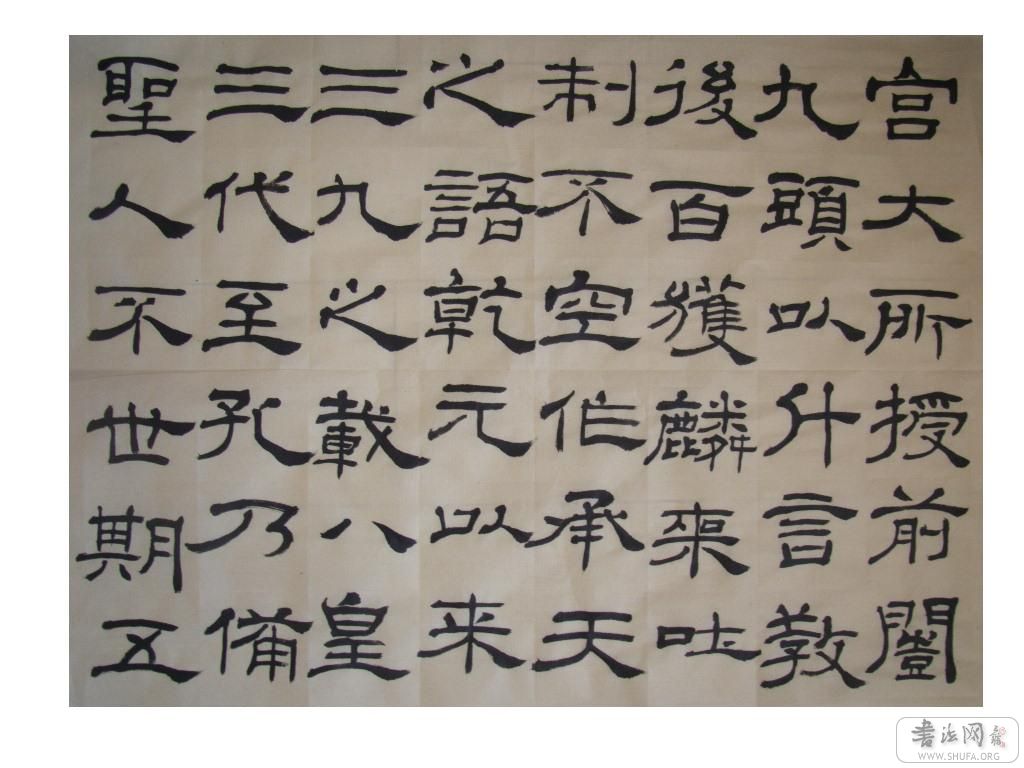 宫大所授前闓
九頭以什言教
後百獲麟來吐
制不空作承天
之語乾元以来
三九之載八皇
三代至孔乃備
聖人不世期五
書法网
WWW.SHUFA.ORG